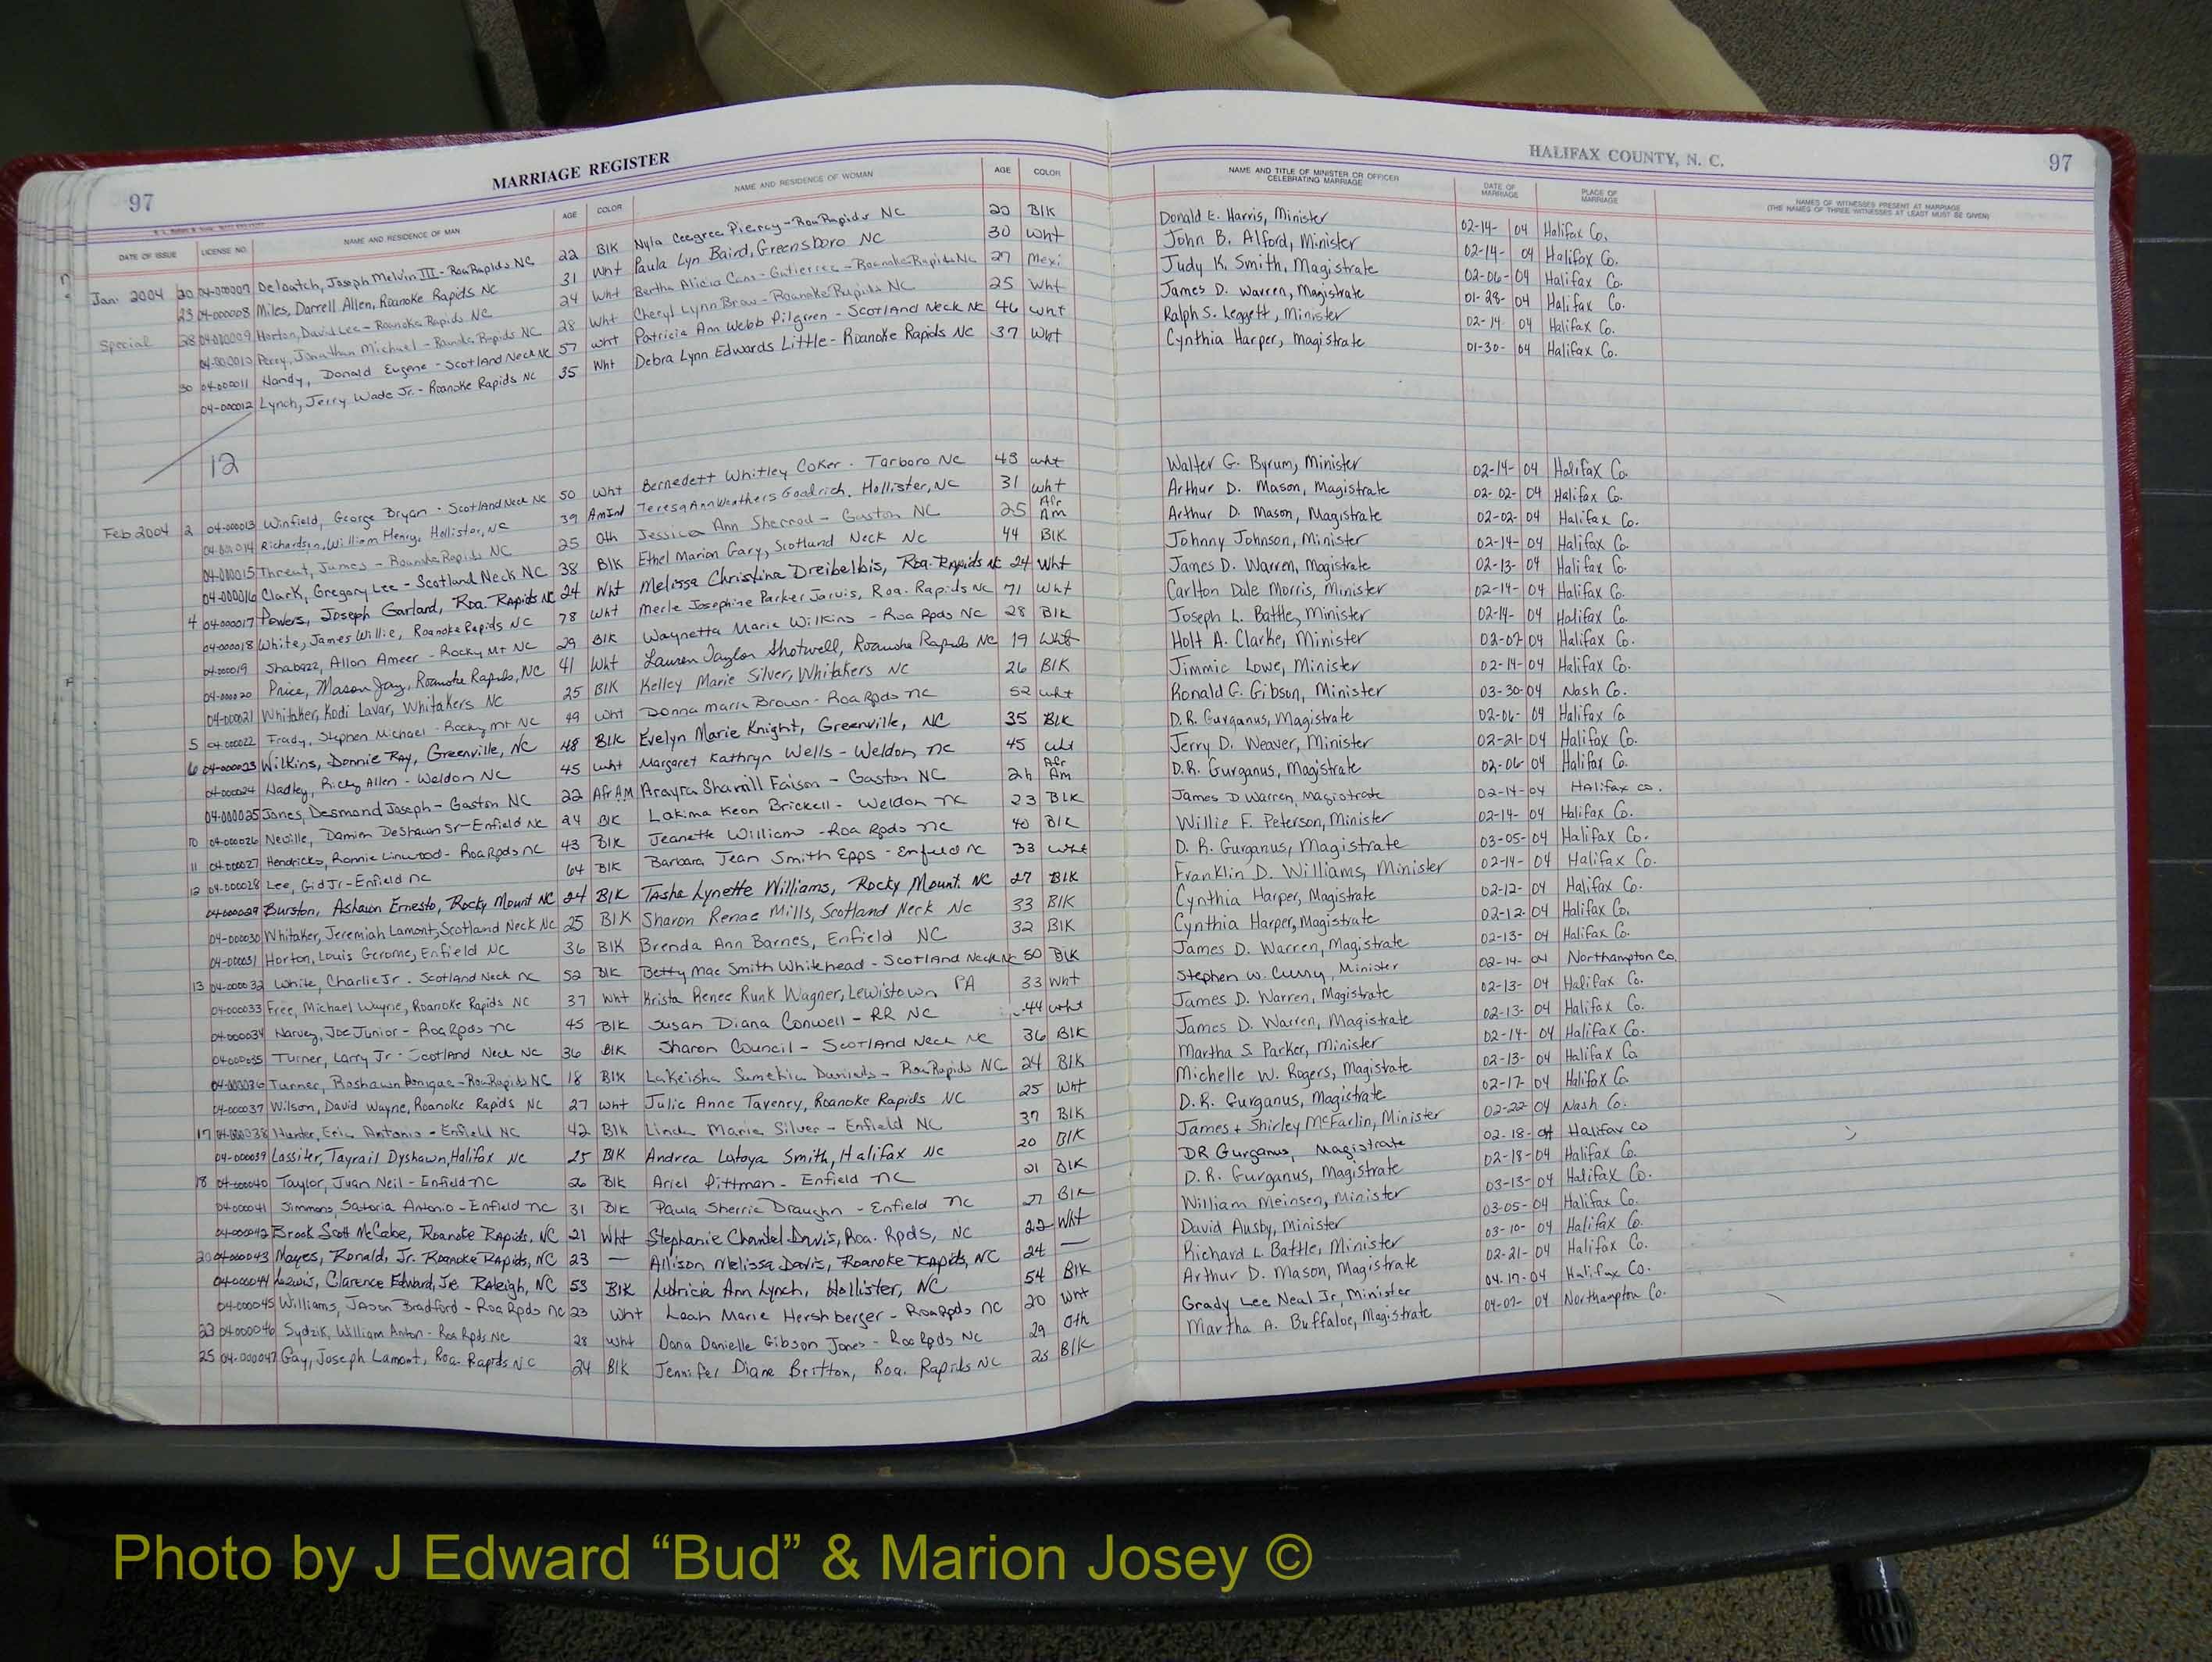 97 MARRIAGE REGISTER
HALIFAX COUNTY, N. C. 97
DATE OF ISSUE LICENSE NO. NAME AND RESIDENCE OF MAN AGE COLOR NAME AND RESIDENCE OF WOMAN AGE COLOR NAME AND TITLE OF MINISTER OR OFFICER CELEBRATING MARRIAGE DATE OF MARRIAGE PLACE OF MARRIAGE NAMES OF WITNESSES PRESENT AT MARRIAGE (THE NAMES OF THREE WITNESSES AT LEAST MUST BE GIVEN)
Jan. 2004 20 04-000007 Deloatch, Joseph Melvin III - RoaRapids NC 22 Blk Nyla Piercy - RoaRapids NC 20 Blk Donald E. Harris, Minister 02-14-04 Halifax Co.
23 04-000008 Miles, Darrell Allen, Roanoke Rapids NC 31 Wht Paula Lyn Baird, Greensboro NC 30 Wht John B. Alford, Minister 02-14-04 Halifax Co.
Special 28 04-000009 Horton, David Lee - Roanoke Rapids NC 24 Wht Bertha Alicia Cans-Gutierrez - Roanoke Rapids NC 27 Mexi Judy K. Smith, Magistrate 02-06-04 Halifax Co.
04-000010 Perry, Jonathan Michael - Roanoke Rapids NC 28 Wht Cheryl Lynn Brow - Roanoke Rapids NC 25 Wht James D. Warren, Magistrate 01-28-04 Halifax Co.
30 04-000011 Handy, Donald Eugene - Scotland Neck NC 57 Wht Patricia Ann Webb Pilgreen - Scotland Neck NC 46 Wht Ralph S. Leggett, Minister 02-14-04 Halifax Co.
04-000012 Lynch, Jerry Wade Jr. - Roanoke Rapids NC 35 Wht Debra Lynn Edwards Little - Roanoke Rapids NC 37 Wht Cynthia Harper, Magistrate 01-30-04 Halifax Co.
12
Feb 2004 2 04-000013 Winfield, George Bryan - Scotland Neck NC 50 Wht Bernedett Whitley Coker - Tarboro NC 43 Wht Walter G. Byrum, Minister 02-14-04 Halifax Co.
04-000014 Richardson, William Henry, Hollister, NC 39 AmInd Teresa Ann Weathers Goodrich, Hollister, NC 31 Wht Arthur D. Mason, Magistrate 02-02-04 Halifax Co.
04-000015 Threat, James - Roanoke Rapids NC 25 Oth Jessica Ann Sherrod - Gaston NC 25 Afr Am Arthur D. Mason, Magistrate 02-02-04 Halifax Co.
04-000016 Clark, Gregory Lee - Scotland Neck NC 38 Blk Ethel Marion Gary, Scotland Neck NC 44 Blk Johnny Johnson, Minister 02-14-04 Halifax Co.
4 04-000017 Powers, Joseph Garland, Roa. Rapids NC 24 Wht Melissa Christina Dreibelbis, Roa. Rapids NC 24 Wht James D. Warren, Magistrate 02-13-04 Halifax Co.
04-000018 White, James Willie, Roanoke Rapids NC 78 Wht Merle Josephine Parker Jarvis, Roa. Rapids NC 71 Wht Carlton Dale Morris, Minister 02-14-04 Halifax Co.
04-000019 Shabazz, Allon Ameer - Rocky Mt NC 29 Blk Waynetta Marie Wilkins - Roa Rpds NC 28 Blk Joseph L. Battle, Minister 02-14-04 Halifax Co.
04-000020 Price, Mason Jay, Roanoke Rapids, NC 41 Wht Lauren Taylor Shotwell, Roanoke Rapids NC 19 Wht Holt A. Clarke, Minister 02-07-04 Halifax Co.
04-000021 Whitaker, Kodi Lavar, Whitakers NC 25 Blk Kelley Marie Silver, Whitakers NC 26 Blk Jimmie Lowe, Minister 02-14-04 Halifax Co.
5 04-000022 Frady, Stephen Michael - Rocky Mt NC 49 Wht Donna Marie Brown - Roa Rpds NC 52 Wht Ronald G. Gibson, Minister 03-30-04 Nash Co.
6 04-000023 Wilkins, Donnie Ray, Greenville, NC 48 Blk Evelyn Marie Knight, Greenville, NC 35 Blk D.R. Gurganus, Magistrate 02-06-04 Halifax Co
04-000024 Hadley, Ricky Allen - Weldon NC 45 Wht Margaret Kathryn Wells - Weldon NC 45 Wht Jerry D. Weaver, Minister 02-21-04 Halifax Co.
04-000025 Jones, Desmond Joseph - Gaston NC 22 Afr AM Arayra Sharnill Faison - Gaston NC 26 Afr Am D.R. Gurganus, Magistrate 02-06-04 Halifax Co.
10 04-000026 Neville, Damien DeShawn Sr - Enfield NC 24 Blk Lakima Keon Brickell - Weldon NC 23 Blk James D Warren, Magistrate 02-14-04 Halifax co.
11 04-000027 Hendricks, Ronnie Linwood - Roa Rpds NC 43 Blk Jeanette Williams - Roa Rpds NC 40 Blk Willie F. Peterson, Minister 02-14-04 Halifax Co.
12 04-000028 Lee, Gid Jr - Enfield NC 64 Blk Barbara Jean Smith Epps - Enfield NC 33 Wht D. R. Gurganus, Magistrate 03-05-04 Halifax Co.
04-000029 Burston, Ashawn Ernesto, Rocky Mount NC 24 Blk Tasha Lynette Williams, Rocky Mount NC 27 Blk Franklin D. Williams, Minister 02-14-04 Halifax Co.
04-000030 Whitaker, Jeremiah Lamont, Scotland Neck NC 25 Blk Sharon Renae Mills, Scotland Neck NC 33 Blk Cynthia Harper, Magistrate 02-12-04 Halifax Co.
04-000031 Horton, Louis Gerome, Enfield NC 36 Blk Brenda Ann Barnes, Enfield NC 32 Blk Cynthia Harper, Magistrate 02-12-04 Halifax Co.
13 04-000032 White, Charlie Jr. Scotland Neck NC 52 Blk Betty Mae Smith Whitehead - Scotland Neck NC 50 Blk James D. Warren, Magistrate 02-13-04 Halifax Co.
04-000033 Free, Michael Wayne, Roanoke Rapids NC 37 Wht Krista Renee Runk Wagner, Lewistown PA 33 Wht Stephen W. Curry, Minister 02-14-04 Northampton Co.
04-000034 Harvey, Joe Junior - Roa Rpds NC 45 Blk Susan Diana Conwell - RR NC 44 Wht James D. Warren, Magistrate 02-13-04 Halifax Co.
04-000035 Turner, Larry Jr - Scotland Neck NC 36 Blk Sharon Council - Scotland Neck NC 36 Blk James D. Warren, Magistrate 02-13-04 Halifax Co.
04-000036 Turner, Roshawn - RoaRapids NC 18 Blk LaKeisha Daniels - RoaRapids NC 24 Blk Martha S. Parker, Minister 02-14-04 Halifax Co.
04-000037 Wilson, David Wayne, Roanoke Rapids NC 27 Wht Julie Anne Taveney, Roanoke Rapids NC 25 Wht Michelle W. Rogers, Magistrate 02-13-04 Halifax Co
17 04-000038 Hunter, Eric Antonio - Enfield NC 42 Blk Linda Marie Silver - Enfield NC 37 Blk D.R. Gurganus, Magistrate 02-17-04 Halifax Co
04-000039 Lassiter, Tayrail Dyshawn, Halifax NC 25 Blk Andrea Latoya Smith, Halifax NC 20 Blk James + Shirley McFarlin, Minister 02-22-04 Nash Co.
18 04-000040 Taylor, Juan Neil - Enfield NC 26 Blk Ariel Pittman - Enfield NC 21 Blk DR Gurganus, Magistrate 02-18-04 Halifax Co
04-000041 Simmons, Satoria Antonio - Enfield NC 31 Blk Paula Sherrie Draughn - Enfield NC 27 Blk D. R. Gurganus, Magistrate 02-18-04 Halifax Co.
04-000042 Brook Scott McCabe, Roanoke Rapids, NC 21 Wht Stephanie Chantel Davis, Roa. Rpds, NC 22 Wht William Meinsen, Minister 03-13-04 Halifax Co.
20 04-000043 Mayes, Ronald, Jr. Roanoke Rapids, NC 23 — Allison Melissa Davis, Roanoke Rapids, NC 24 — David Ausby, Minister 03-05-04 Halifax Co.
04-000044 Lewis, Clarence Edward, Jr. Raleigh, NC 53 Blk Lutricia Ann Lynch, Hollister, NC 54 Blk Richard L. Battle, Minister 03-10-04 Halifax Co.
04-000045 Williams, Jason Bradford - Roa Rpds NC 23 Wht Leah Marie Hershberger - Roa Rpds NC 20 Wht Arthur D. Mason, Magistrate 02-21-04 Halifax Co.
23 04-000046 Sydzik, William Anton - Roa Rpds NC 28 Wht Dana Danielle Gibson Jones - Roa Rpds NC 29 Oth Grady Lee Neal Jr, Minister 04-17-04 Halifax Co.
25 04-000047 Gay, Joseph Lamont, Roa. Rapids NC 24 Blk Jennifer Diane Britton, Roa. Rapids NC 25 Blk Martha A. Buffaloe, Magistrate 04-07-04 Northampton Co.
Photo by J Edward “Bud” & Marion Josey ©